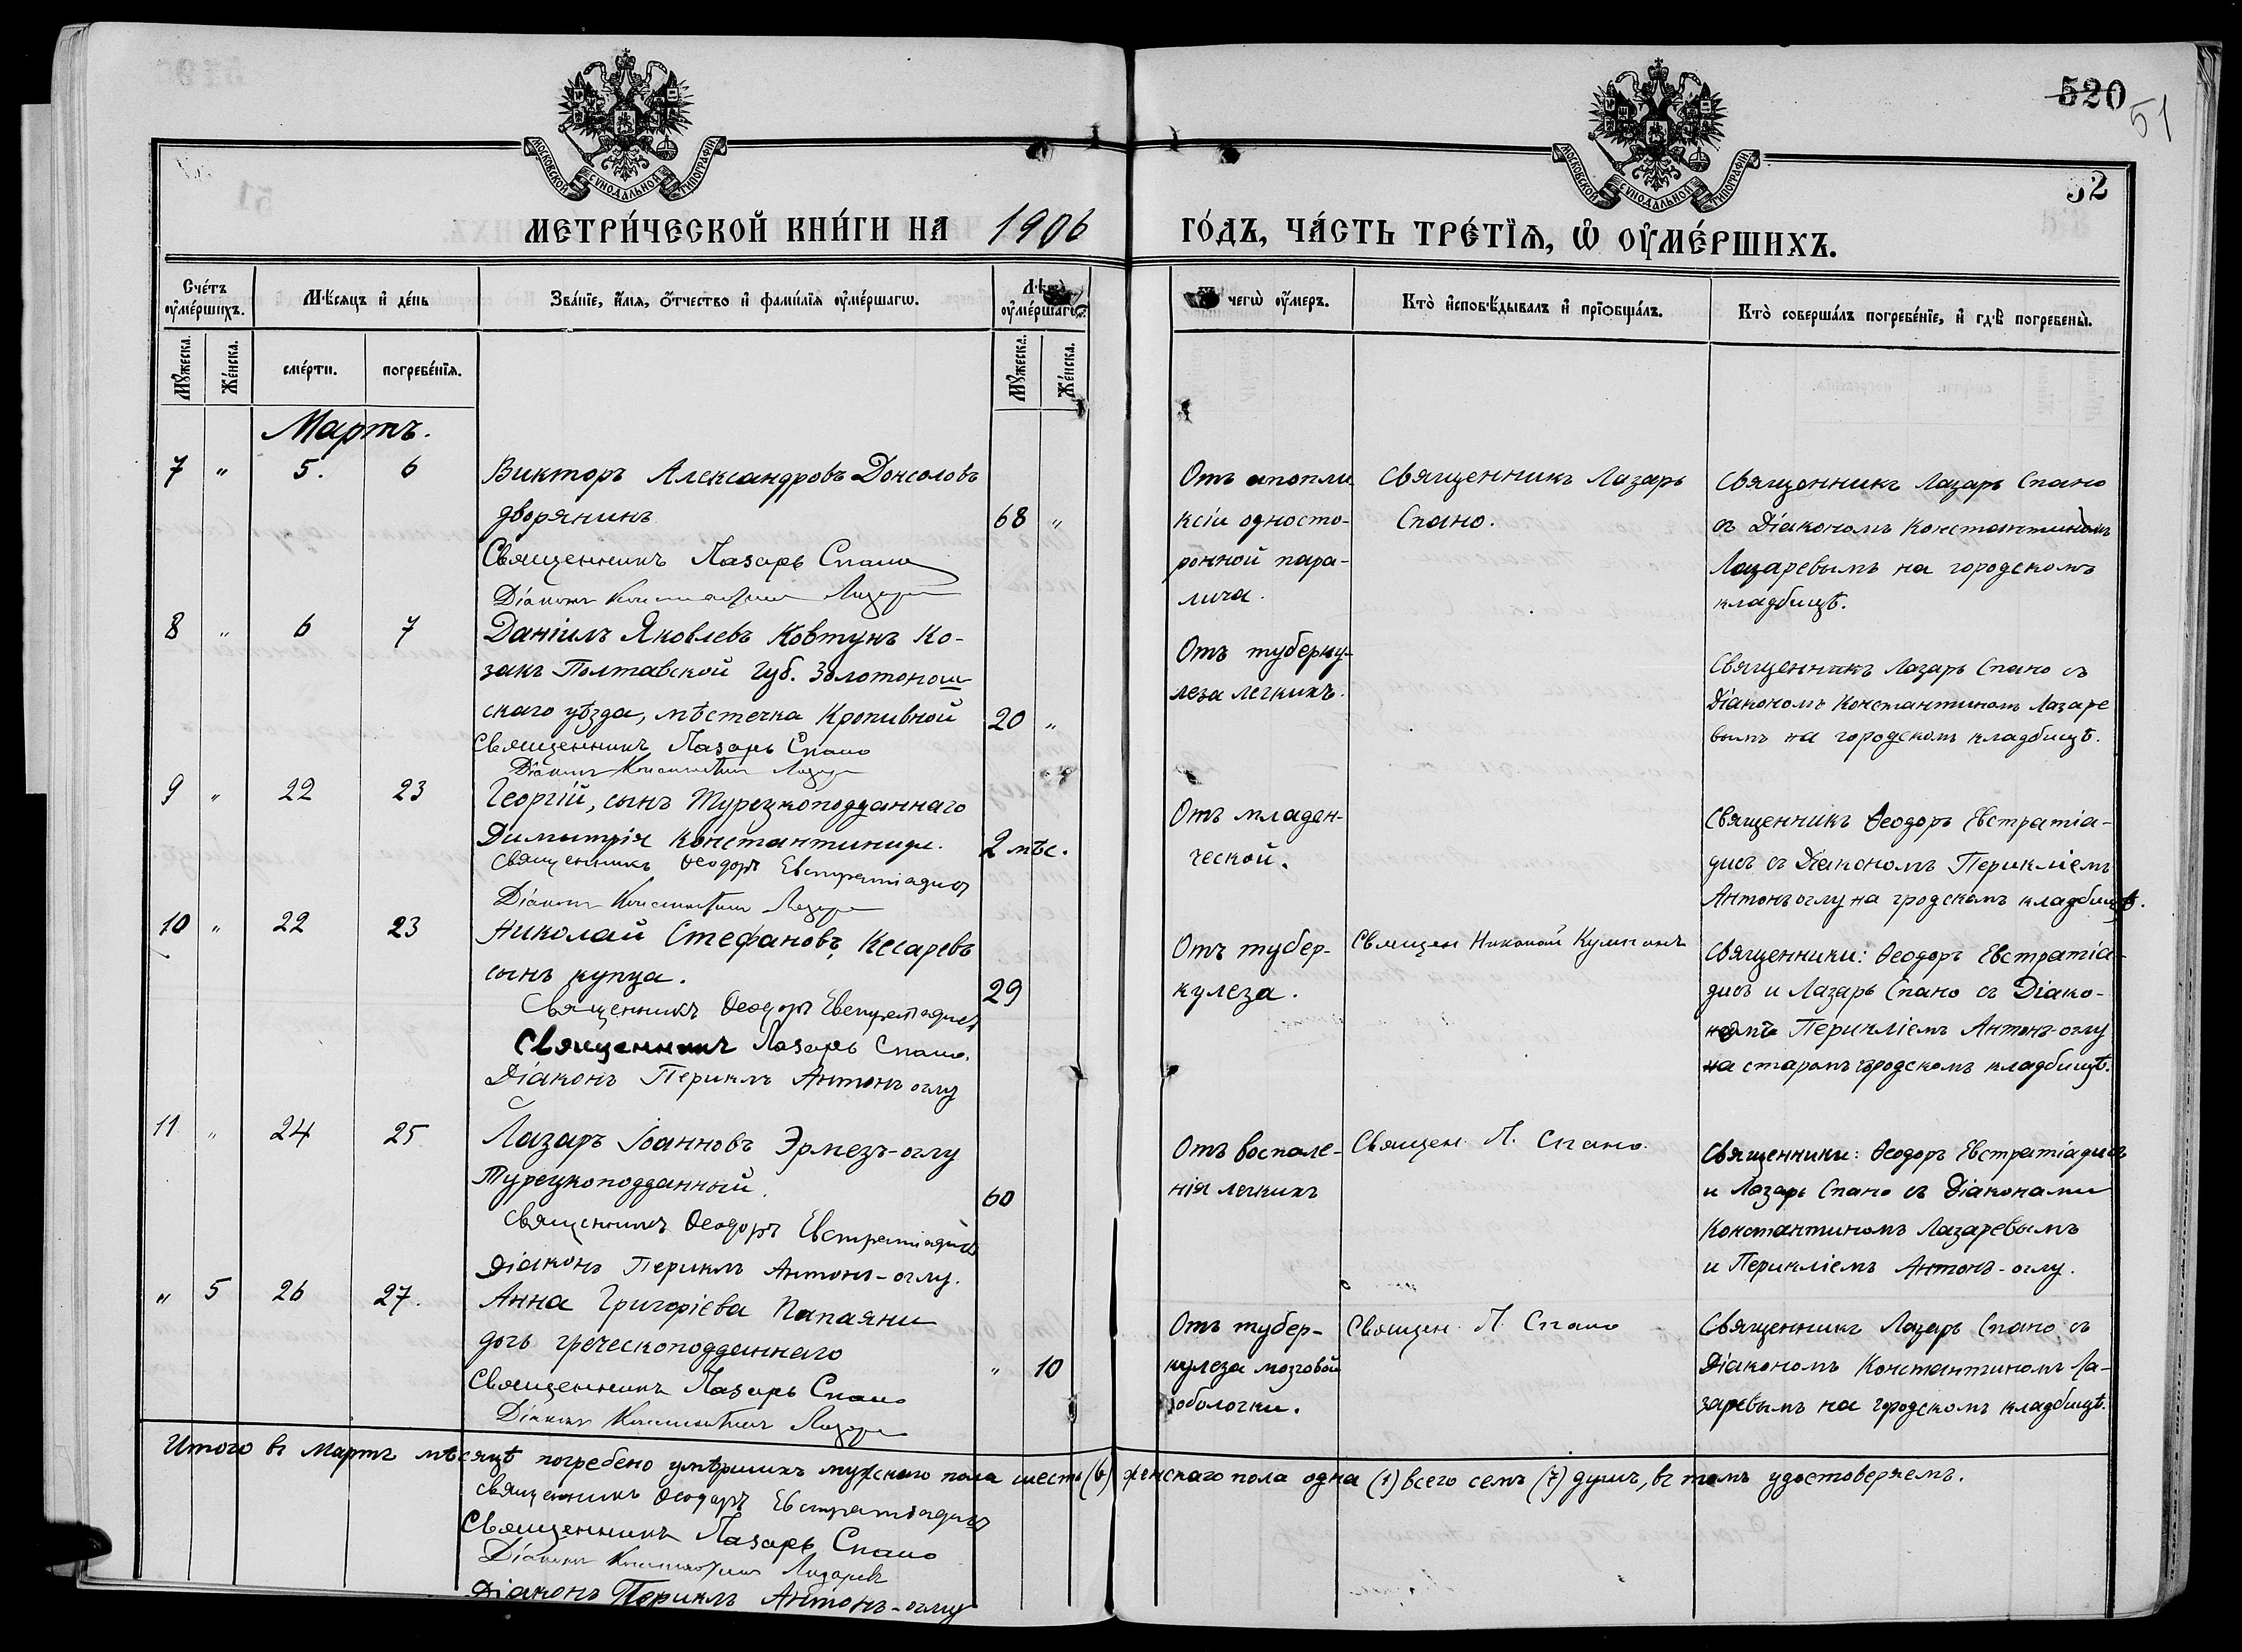 520
51
52
МОСКОВСКОЙ СѴНОДАЛЬНОЙ ТИПОГРАФІИ
МОСКОВСКОЙ СѴНОДАЛЬНОЙ ТИПОГРАФІИ
МЕТРИ́ЧЕСКОЙ КНИ́ГИ НА 1906 ГО́ДЪ, ЧА́СТЬ ТРЕ́ТІѦ, Ѡ҆ ОУ҆МЕ́РШИХЪ.
Сче́тъ оу҆ме́ршихъ.
Мѣ́сяцъ и҆ де́нь
Зва́нїе, и҆́мя, ѻ҆́тчество и҆ фами́лїя оу҆ме́ршагѡ.
оу҆ме́ршагѡ.
чегѡ̀ оу҆́меръ.
Кто̀ и҆сповѣ́дывалъ и҆ прїѻбща́лъ.
Кто̀ соверша́лъ погребе́нїе, и҆ гдѣ̀ погребены̀.
Мꙋ́жеска.
Же́нска.
сме́рти.
погребе́нїя.
Мꙋ́жеска.
Же́нска.
Мартъ.
7 " 5. 6
Викторъ Александровъ Донсоловъ
дворянинъ
68 "
Священникъ Лазарь Спано
Діаконъ Константинъ Лазаревъ
Отъ апопли
ксіи односто-
ронной пара-
лича.
Священникъ Лазарь
Спано.
Священникъ Лазарь Спано
съ Діакономъ Константиномъ
Лазаревымъ на городскомъ
кладбищѣ.
8 " 6 7
Даніилъ Яковлевъ Ковтунъ Ко-
закъ Полтавской Губ. Золотонош
скаго уѣзда, мѣстечка Кропивной
20 "
Священникъ Лазарь Спано
Діаконъ Константинъ Лазаревъ
Отъ туберку-
леза легкихъ.
Священникъ Лазарь Спано съ
Діакономъ Константиномъ Лазаре
вымъ на городскомъ кладбищѣ.
9 " 22 23
Георгій, сынъ Турецкоподданнаго
Димитрія Константиниди.
2 мѣс.
Священникъ Ѳеодоръ Евстратіадисъ
Діаконъ Константинъ Лазаревъ
Отъ младен-
ческой.
Священникъ Ѳеодоръ Евстратіа-
дисъ съ Діакономъ Перикліемъ
Антонъ оглу на гродскомъ кладбищѣ.
10 " 22 23
Николай Стефановъ, Кесаревъ
сынъ купца.
29
Священникъ Ѳеодоръ Евстратіадисъ
Священникъ Лазарь Спано.
Діаконъ Периклъ Антонъ оглу
Отъ тубер-
кулеза.
Священ Николай Кумпанъ
Священники: Ѳеодоръ Евстратіа-
дисъ и Лазарь Спано съ Діако-
номъ Перикліемъ Антонъ-оглу
на старомъ городскомъ кладбищѣ.
11 " 24 25
Лазарь Іоанновъ Эрмезъ-оглу
Турецкоподданный.
60
Священникъ Ѳеодоръ Евстратіадисъ
Діаконъ Периклъ Антонъ-оглу.
Отъ воспале-
нія легкихъ
Священ. Л. Спано.
Священники: Ѳеодоръ Евстратіадисъ
и Лазарь Спано съ Діаконами
Константиномъ Лазаревымъ
и Перикліемъ Антонъ-оглу.
" 5 26 27.
Анна Григорієва Папаяни
дочь греческоподданнаго
" 10
Священникъ Лазарь Спано
Діаконъ Константинъ Лазаревъ
Отъ тубер-
кулеза мозговой
оболочки.
Священ. Л. Спано
Священникъ Лазарь Спано съ
Діакономъ Константиномъ Ла-
заревымъ на городскомъ кладбищѣ.
Итого въ Мартъ мѣсяцѣ погребено умѣршихъ мужскаго пола шесть (6) женскаго пола одна (1) всего семь (7) душъ, въ томъ удостоверяемъ.
Священникъ Ѳеодоръ Евстратіадисъ
Священникъ Лазарь Спано
Діаконъ Константинъ Лазаревъ
Діаконъ Периклъ Антонъ-оглу